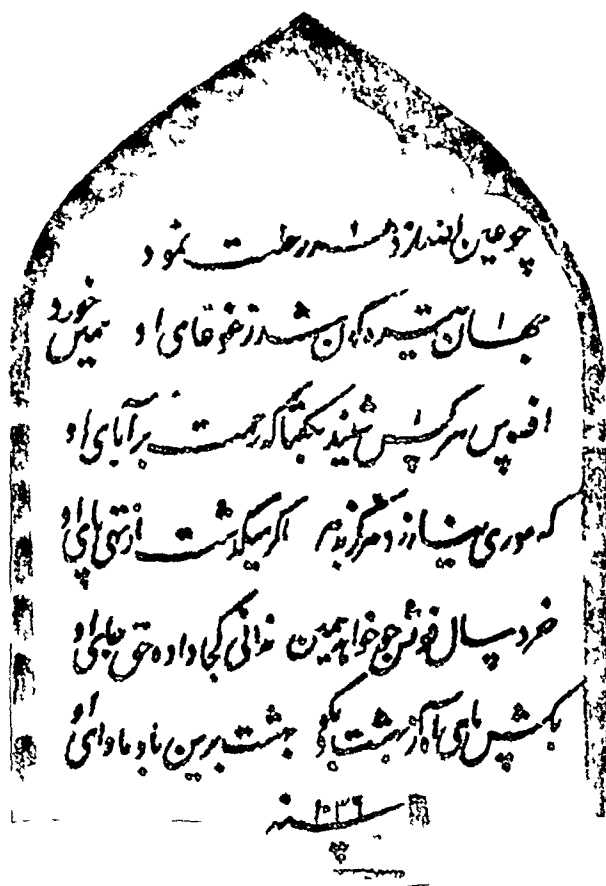 چو عین الله از دهر رحلت نمود
جهان تیره گون شد ز غوغای او همین خورد
افسوس هر کس شنید بگفتا که رحمت بر آبای او
که موری نیازرد هرگز بدم اگر میگذشت از ته پای او
خرد سال فوتش چو خواهد همین ندانی کجا داده حق جای او
بکش پس پای از بهشت بگو بهشت برین باد ماوای او
سنه ۱۰۳۶